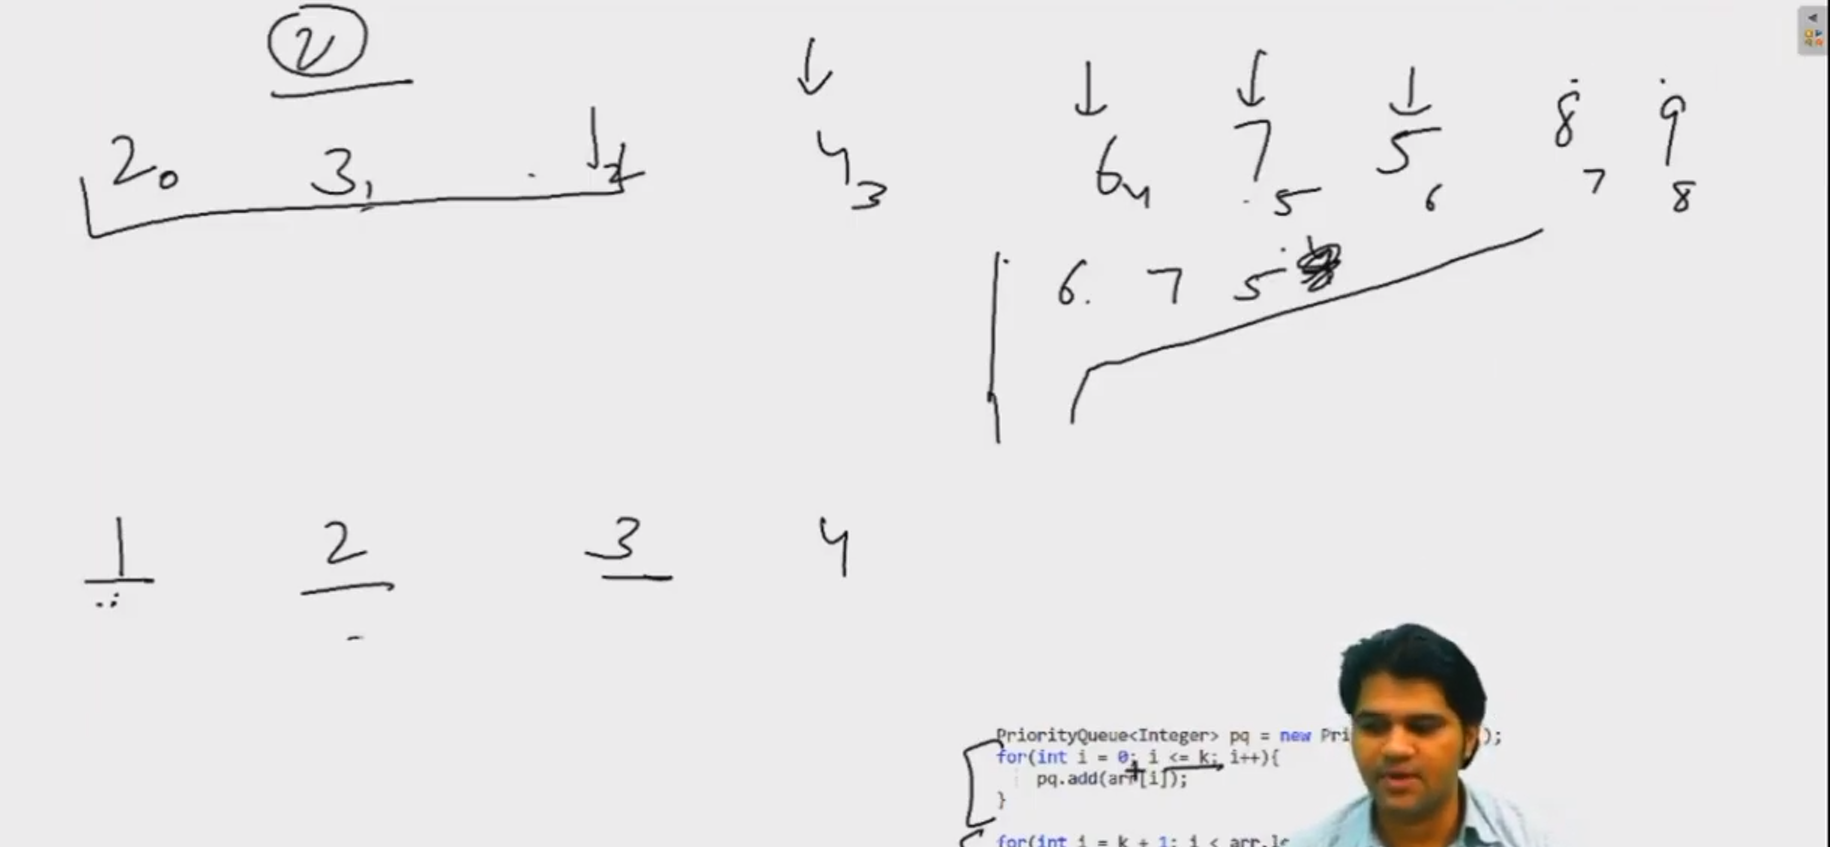 2
2 0 3 1 1 2 4 3 6 4 7 5 5 6 8 7 9 8
6. 7 5
1 2 3 4
PriorityQueue<Integer> pq = new Pri );
for(int i = 0; i <= k; i++){
pq.add(arr[i]);
}
for(int i = k + 1; i < arr.le